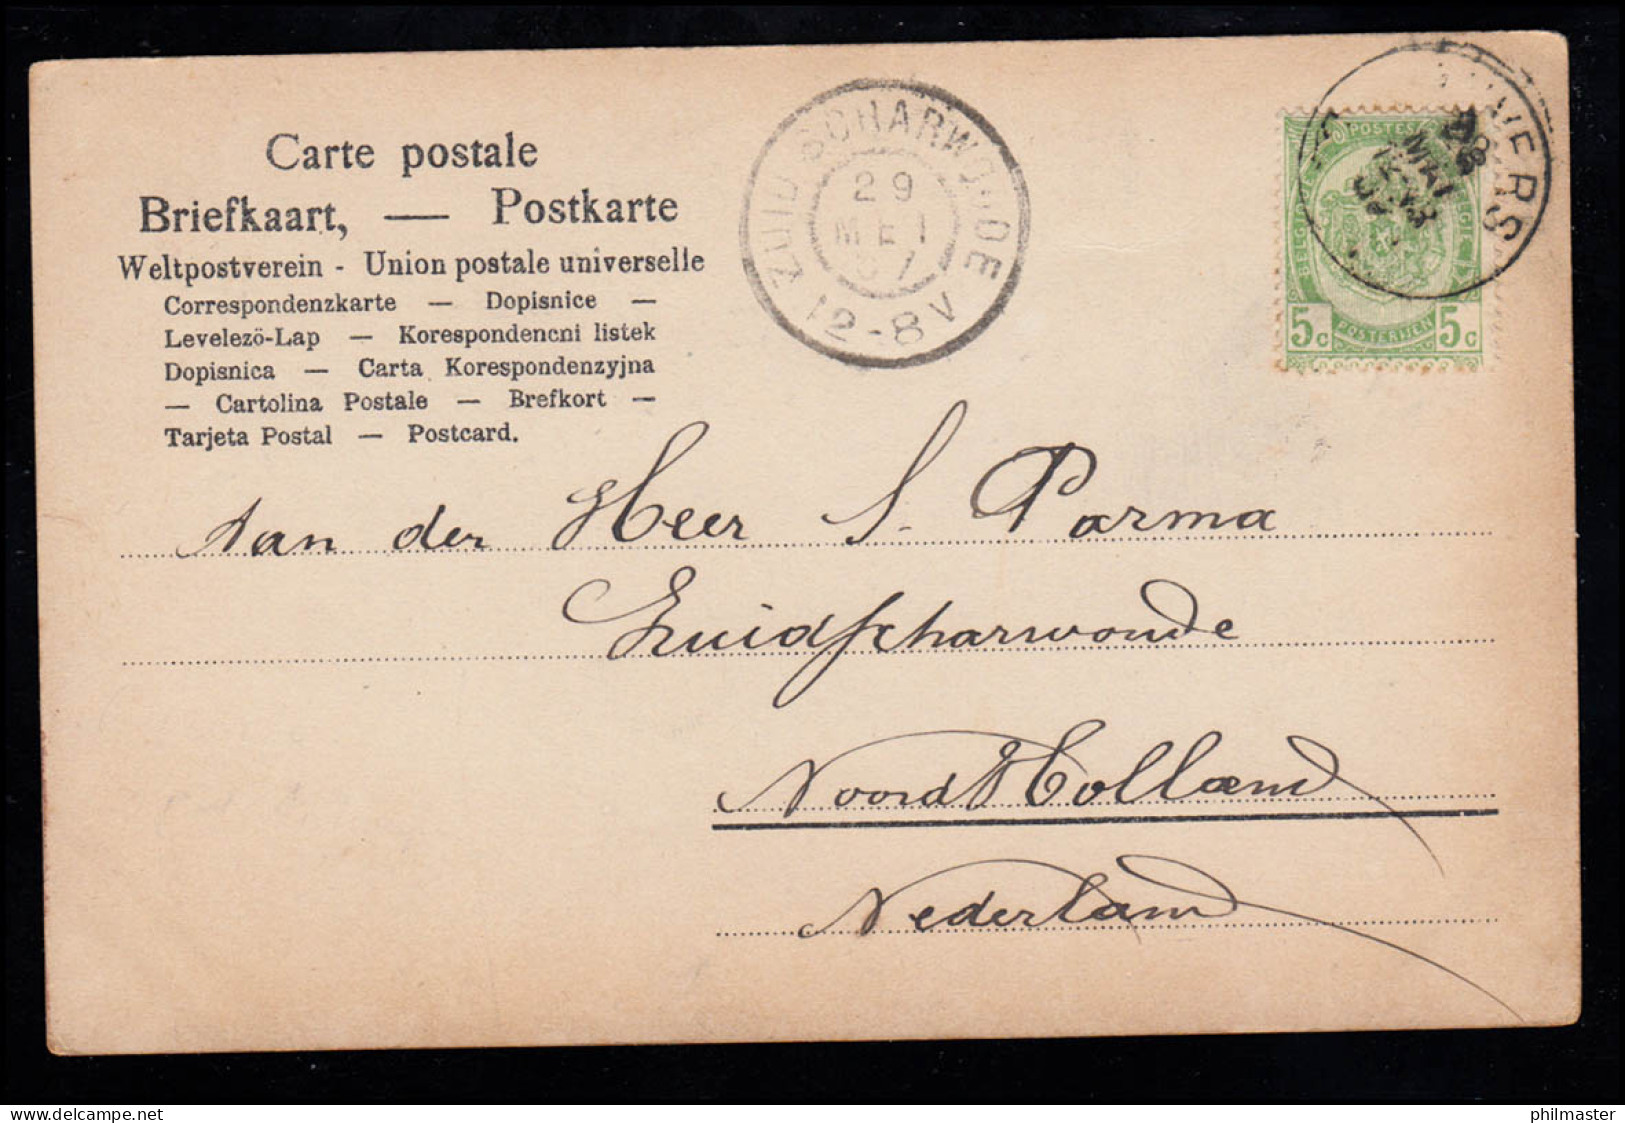 Carte postale
Briefkaart, — Postkarte
Weltpostverein - Union postale universelle
Correspondenzkarte — Dopisnice —
Levelezö-Lap — Korespondencni listek
Dopisnica — Carta Korespondenzyjna
— Cartolina Postale — Brefkort —
Tarjeta Postal — Postcard.
ZUID SCHARWO-OE
29
MEI
12-8V
POSTES
BELGIQUE
BELGIË
5c POSTERIJEN 5c
28
MAI
Aan der Heer S. Parma
Zuidscharwoude
Noord Holland
Nederland
delcampe.net
philmaster